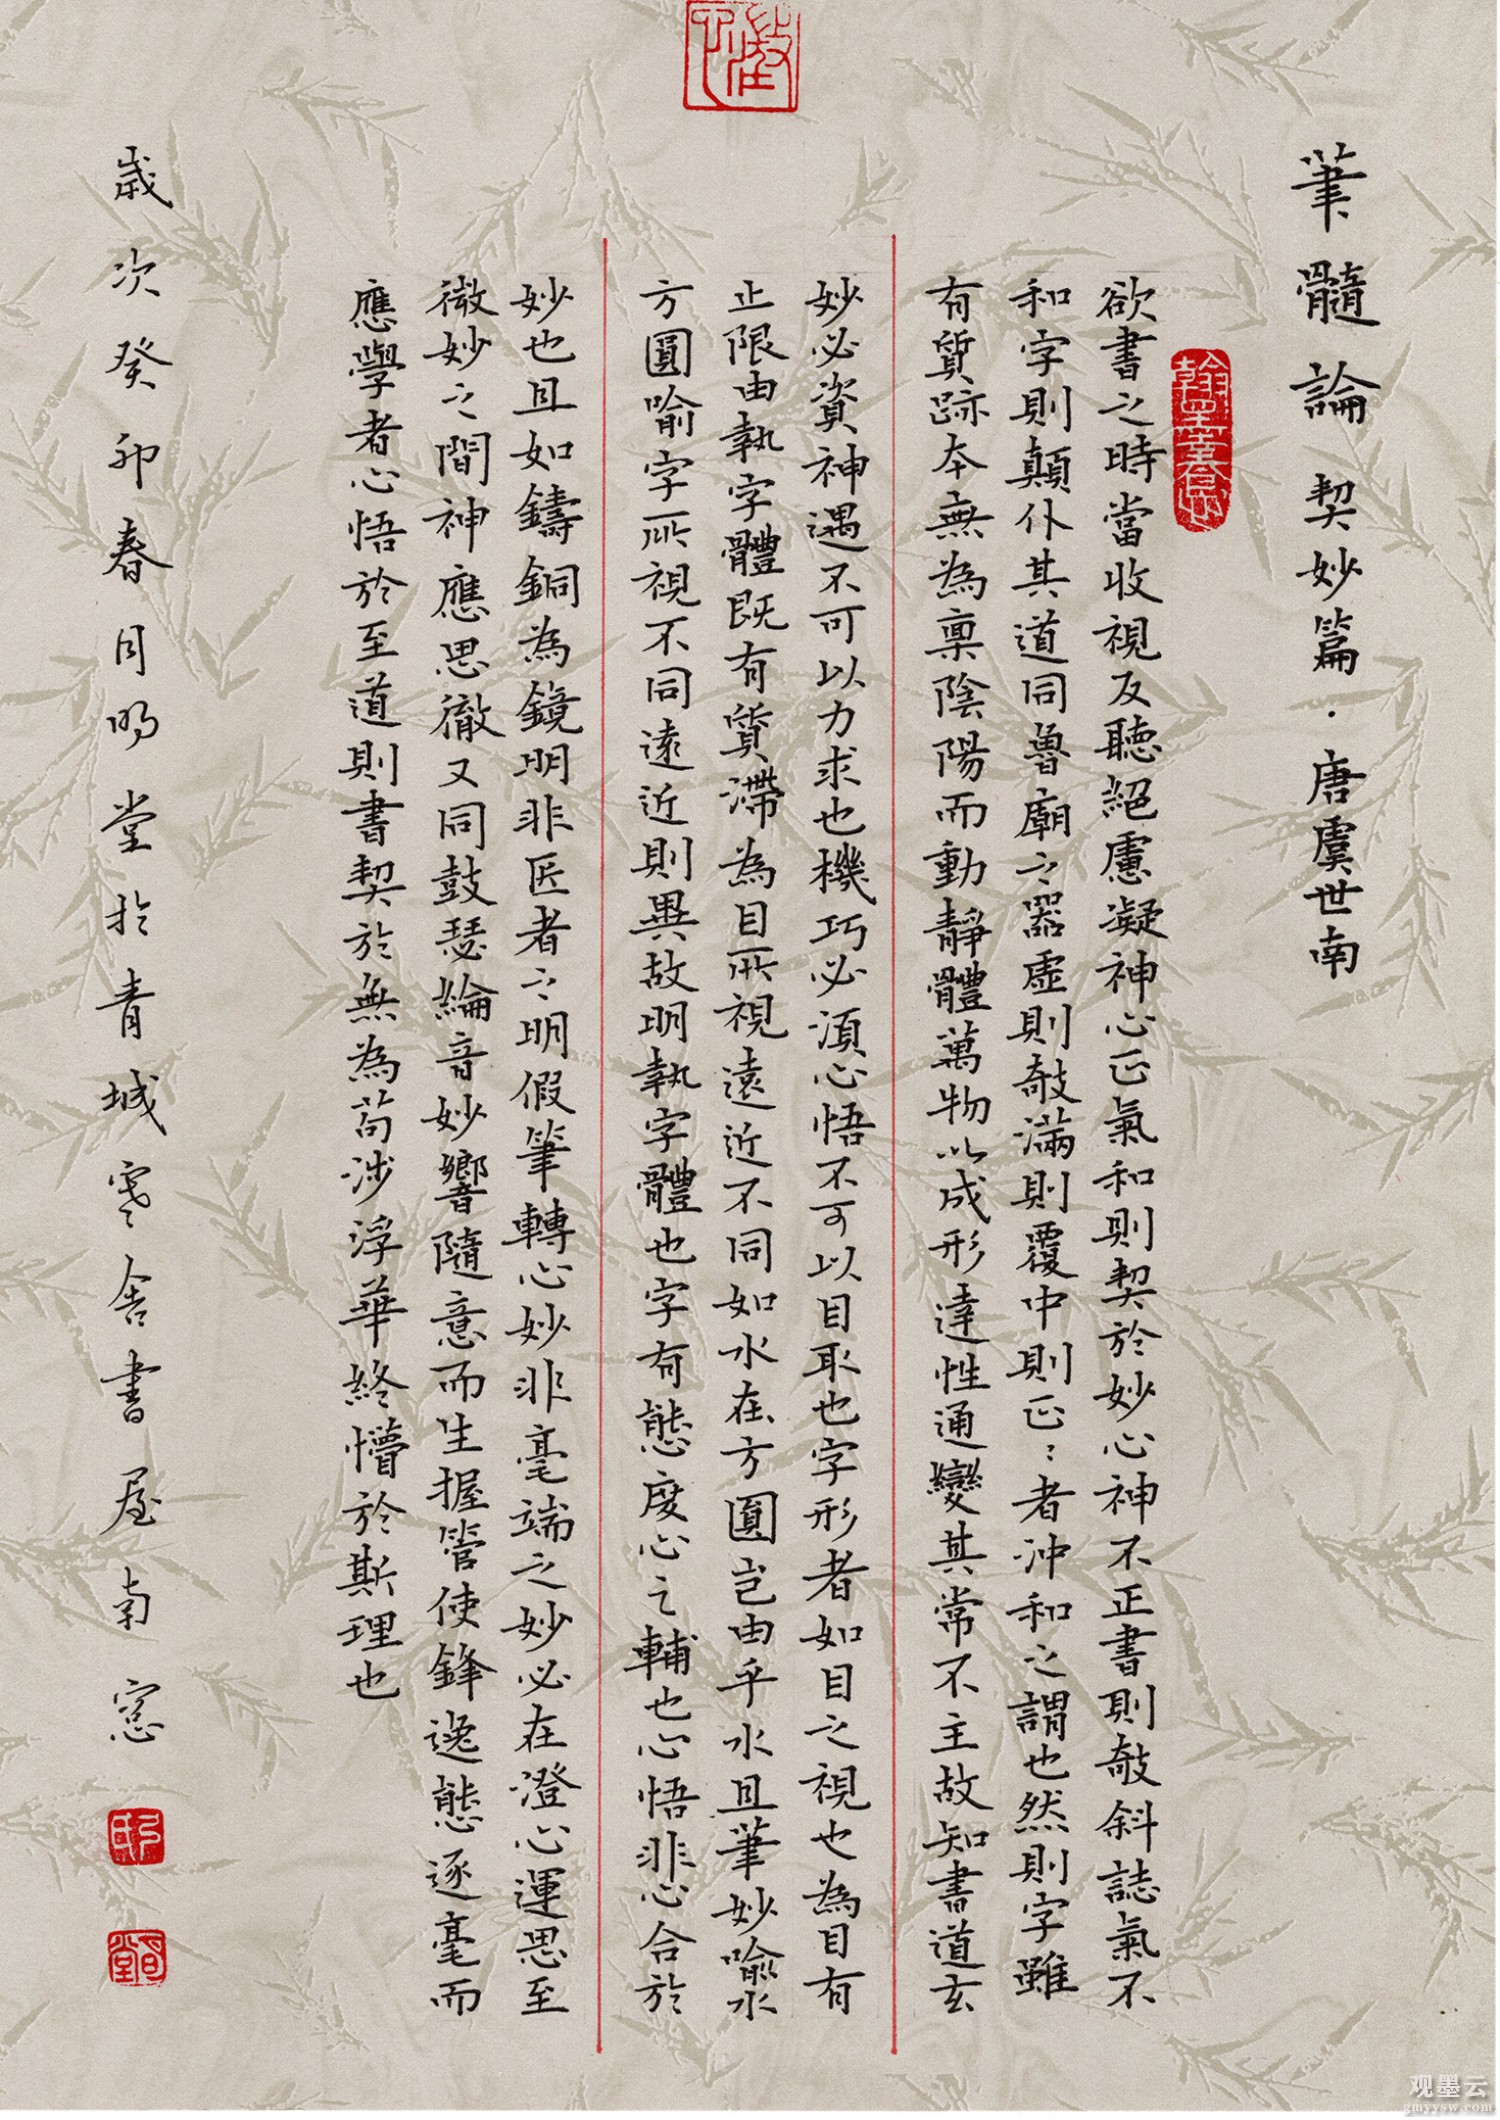 筆髓論 契妙篇·唐虞世南
欲書之時當收視反聽絕慮凝神心正氣和則契於妙心神不正書則敧斜誌氣不
和字則顛仆其道同魯廟之器虛則敧滿則覆中則正：者沖和之謂也然則字雖
有質跡本無為稟陰陽而動靜體萬物以成形達性通變其常不主故知書道玄
妙必資神遇不可以力求也機巧必須心悟不可以目取也字形者如目之視也為目有
止限由執字體既有質滯為目所視遠近不同如水在方圓豈由乎水且筆妙喻水
方圓喻字所視不同遠近則異故明執字體也字有態度心之輔也心悟非心合於
妙也且如鑄銅為鏡明非匠者之明假筆轉心妙非毫端之妙必在澄心運思至
微妙之間神應思徹又同鼓瑟綸音妙響隨意而生握管使鋒逸態逐毫而
應學者心悟於至道則書契於無為苟涉浮華終懵於斯理也
歲次癸卯春月明堂於青城寒舍書屋南窓
观墨云
gmyysw.com